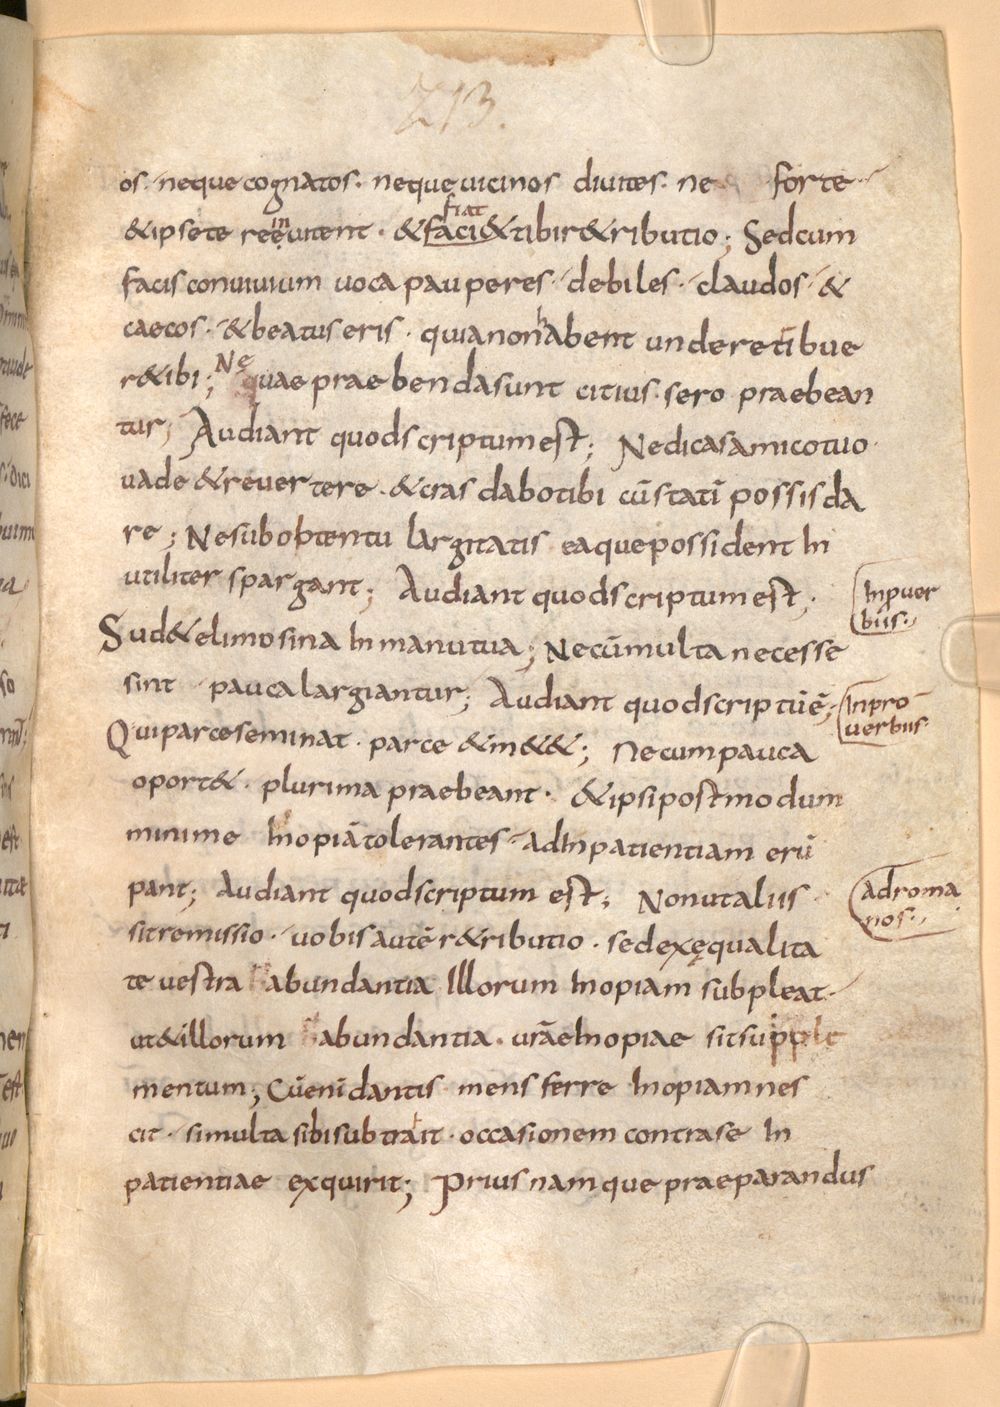 213.
os · neque cognatos · neque vicinos divites · ne forte ·
fiat
in
& ipse te reęvitent · & faci& tibi r&ributio ; Sed cum
facis convivium voca pauperes · debiles · claudos · &
h
caecos · & beatus eris · quia non abent unde retribue
Ne
r& ibi ; quae praebenda sunt citius · sero praebean
tur ; Audiant quod scriptum est ; Ne dicas amico tuo ·
vade & revertere · & cras dabo tibi cū statī possis da
re ; Ne sub obtentu largitatis ea que possident In
utiliter spargant ; Audiant quod scriptum est ;
In pver
biis ·
Sud& elimosina In manu tua ; Ne cū multa necesse
sint pauca largiantur ; Audiant quod scriptū ē ;
In pro
verbiis
Qui parce seminat · parce & m&& ; Ne cum pauca
oport& · plurima praebeant · & ipsi postmodum
minime Inopiā tolerantes · ad Inpatientiam erū
pant ; Audiant quod scriptum est ; Non ut aliis
ad roma
nos ·
sit remissio · vobis autē r&ributio · sed ex ęqualita
te vestra abundantia Illorum Inopiam subpleat ·
ut & illorum abundantia · vrāe Inopiae sit supple
mentum ; Cū enī dantis mens ferre Inopiam nes
cit · si multa sibi subtrait · occasionem contra se In
patientiae exquirit ; Prius namque praeparandus